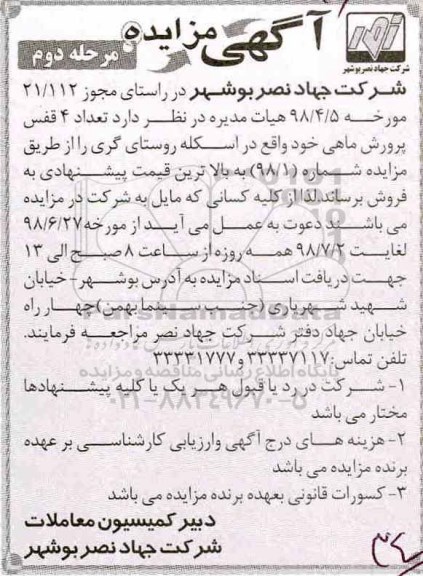 آگهی مزایده
مرحله دوم
شرکت جهاد نصر بوشهر
شرکت جهاد نصر بوشهر در راستای مجوز ۲۱/۱۱۲
مورخه ۹۸/۴/۵ هیات مدیره در نظر دارد تعداد ۴ قفس
پرورش ماهی خود واقع در اسکله روستای گری را از طریق
مزایده شماره (۹۸/۱) به بالا ترین قیمت پیشنهادی به
فروش برساند.لذا از کلیه کسانی که مایل به شرکت در مزایده
می باشند دعوت به عمل می آید از مورخه ۹۸/۶/۲۷
لغایت ۹۸/۷/۲ همه روزه از ساعت ۸ صبح الی ۱۳
جهت دریافت اسناد مزایده به آدرس بوشهر - خیابان
شهید شهریاری (جنب سینما بهمن) چهار راه
خیابان جهاد دفتر شرکت جهاد نصر مراجعه فرمایند.
تلفن تماس: ۳۳۳۳۷۱۱۷ و ۳۳۳۳۱۷۷۷
۱- شرکت در رد یا قبول هر یک یا کلیه پیشنهادها
مختار می باشد
۲- هزینه های درج آگهی وارزیابی کارشناسی بر عهده
برنده مزایده می باشد
۳- کسورات قانونی بعهده برنده مزایده می باشد
دبیر کمیسیون معاملات
شرکت جهاد نصر بوشهر
ParsNamadData
پایگاه اطلاع رسانی مناقصه و مزایده
۰۲۱-۸۸۳۴۹۶۷۰-۵